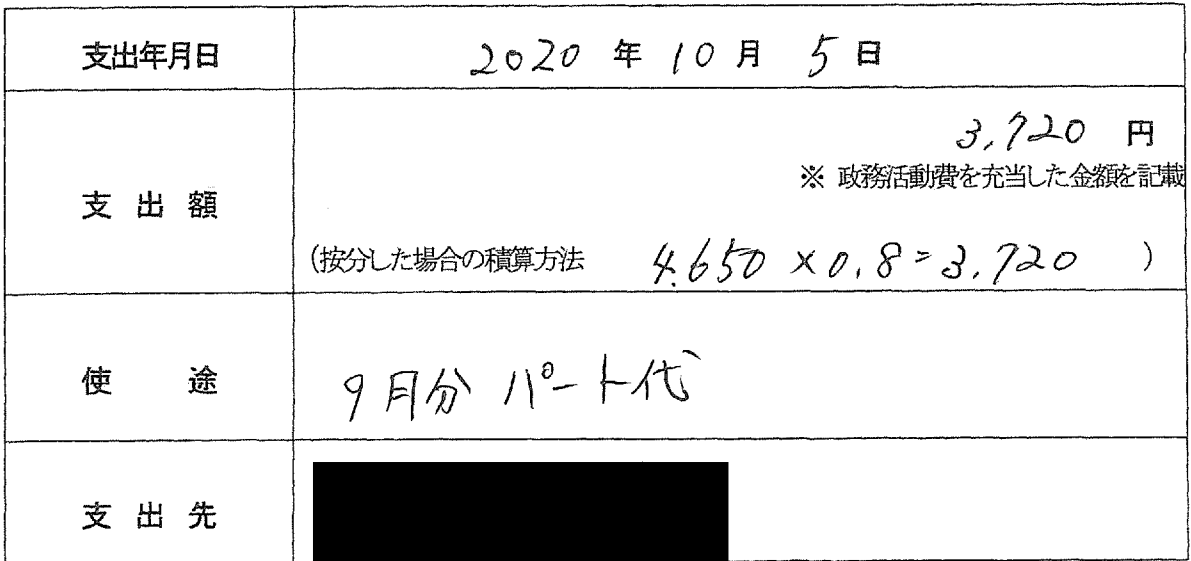 支出年月日 2020 年 10 月 5 日
3,720 円
※ 政務活動費を充当した金額を記載
支出額
(按分した場合の積算方法 4,650 × 0.8 = 3,720 )
使途 9月分 パート代
支出先